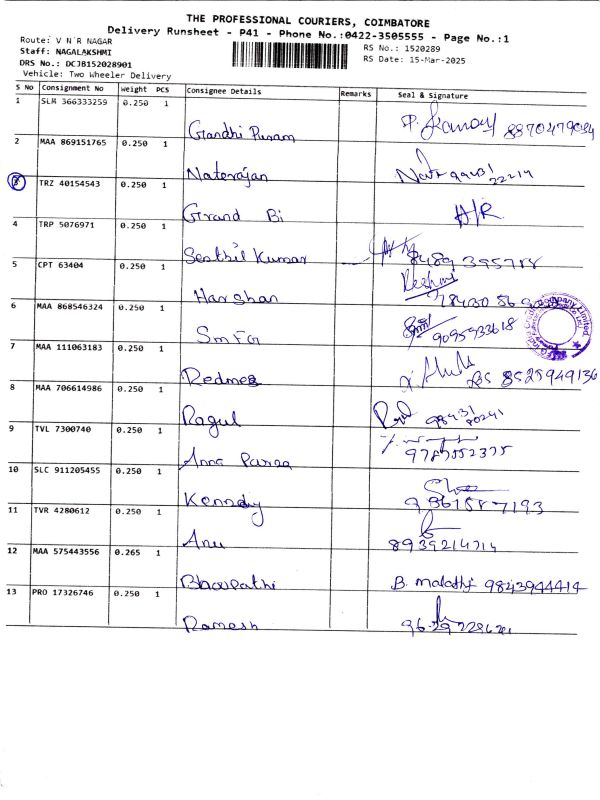 THE PROFESSIONAL COURIERS, COIMBATORE
Delivery Runsheet - P41 - Phone No.:0422-3505555 - Page No.:1
Route: V N R NAGAR
Staff: NAGALAKSHMI
DRS No.: DCJB152028901
Vehicle: Two Wheeler Delivery
RS No.: 1520289
RS Date: 15-Mar-2025
S No Consignment No Weight PCS Consignee Details Remarks Seal & Signature
1 SLM 366333259 0.250 1 Gandhi Puram 8870479084
2 MAA 869151765 0.250 1 Naterajan
3 TRZ 40154543 0.250 1 Grand Bi A/R
4 TRP 5076971 0.250 1 Senthil Kumar
5 CPT 63404 0.250 1 Harshan
6 MAA 868546324 0.250 1 SMFG 9095933618
7 MAA 111063183 0.250 1 8525949136
8 MAA 706614986 0.250 1 Ragul 98431 80241
9 TVL 7300740 0.250 1 Anna
10 SLC 911205455 0.250 1 Kennady
11 TVR 4280612 0.250 1 Anu 8939214714
12 MAA 575443556 0.265 1 Bharathi B. malathi 9843944414
13 PRO 17326746 0.250 1 Ramesh